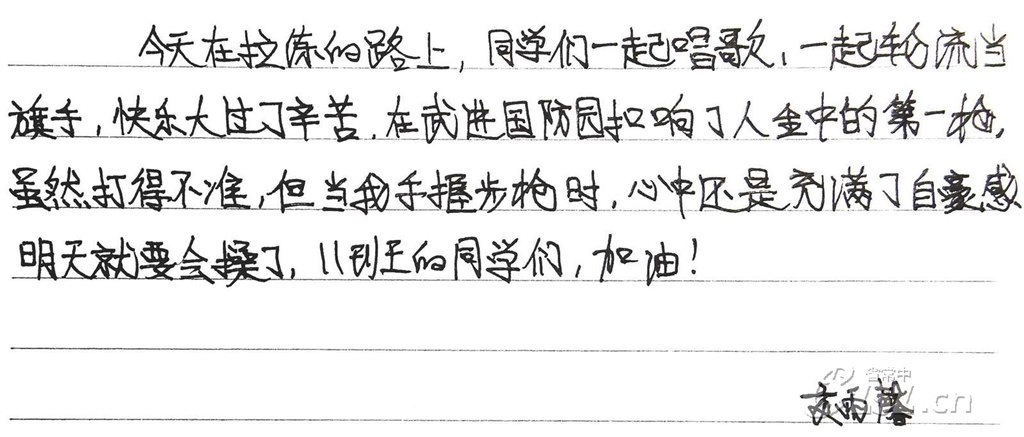 今天在拉练的路上,同学们一起唱歌,一起轮流当
旗手,快乐大过了辛苦.在武进国防园扣响了人金中的第一枪,
虽然打得不准,但当我手握步枪时,心中还是充满了自豪感
明天就要会操了,11班的同学们,加油!
省常中
.cn
雨馨